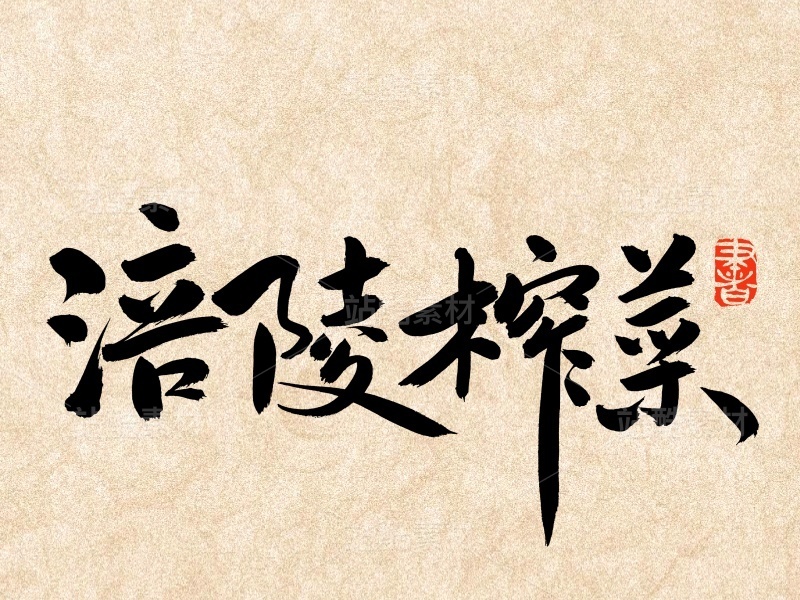 涪陵榨菜